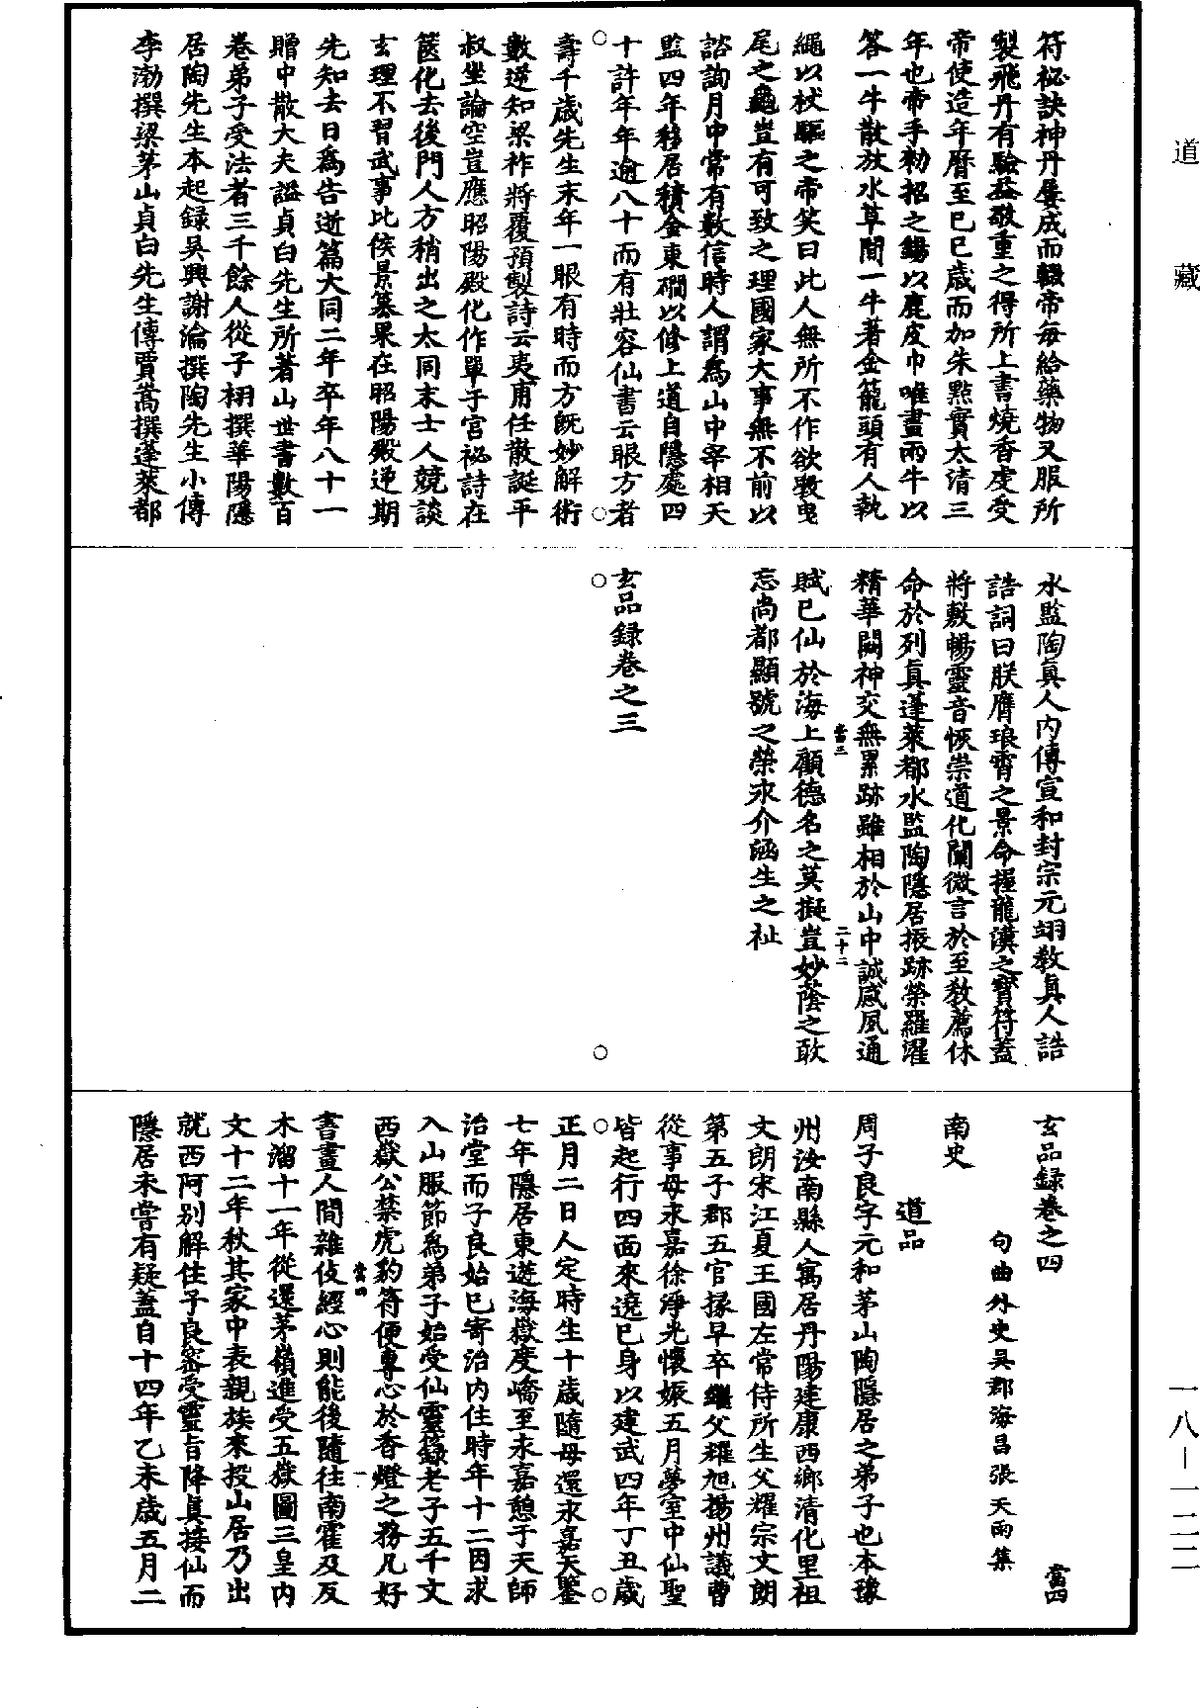 道藏
符祕訣神丹屢成而輟帝每給藥物又服所
製飛丹有驗益敬重之得所上書燒香虔受
帝使造年曆至己巳歲而加朱點實太清三
年也帝手勑招之錫以鹿皮巾唯畫兩牛以
答一牛散放水草間一牛著金籠頭有人執
繩以杖驅之帝笑曰此人無所不作欲斆曳
尾之龜豈有可致之理國家大事無不前以
諮詢月中常有數信時人謂爲山中宰相天
監四年移居積金東磵以修上道自隱處四
十許年年逾八十而有壯容仙書云眼方者
壽千歲先生末年一眼有時而方既妙解術
數逆知梁祚將覆預製詩云夷甫任散誕平
叔坐論空豈應昭陽殿化作單于宮祕詩在
篋化去後門人方稍出之大同末士人競談
玄理不習武事比侯景篡果在昭陽殿逆期
先知去日爲告逝篇大同二年卒年八十一
贈中散大夫謚貞白先生所著山世書數百
卷弟子受法者三千餘人從子栩撰華陽隱
居陶先生本起録吳興謝瀹撰陶先生小傳
李渤撰梁茅山貞白先生傳賈嵩撰蓬萊都
水監陶真人內傳宣和封宗元翊教真人誥
誥詞曰朕膺琅霄之景命握龍漢之寶符蓋
將敷暢靈音恢崇道化闡微言於至教薦休
命於列真蓬萊都水監陶隱居振跡榮羅濯
精華闕神交無累跡雖相於山中誠感夙通
當三
二十二
賦已仙於海上顧德名之莫擬豈妙蔭之敢
忘尚都顯號之榮永介涵生之祉
玄品録卷之三
玄品録卷之四
當四
句曲外史吳郡海昌張天雨集
南史
道品
周子良字元和茅山陶隱居之弟子也本豫
州汝南縣人寓居丹陽建康西鄉清化里祖
文朗宋江夏王國左常侍所生父耀宗文朗
第五子郡五官掾早卒繼父耀旭揚州議曹
從事母永嘉徐淨光懷娠五月夢室中仙聖
皆起行四面來遶已身以建武四年丁丑歲
正月二日人定時生十歲隨母還永嘉天監
七年隱居東遊海嶽度嶠至永嘉憩于天師
治堂而子良始已寄治內住時年十二因求
入山服節爲弟子始受仙靈籙老子五千文
西嶽公禁虎豹符便專心於香燈之務凡好
當四
一
書畫人間雜伎經心則能後隨往南霍及反
木溜十一年從還茅嶺進受五嶽圖三皇內
文十二年秋其家中表親族來投山居乃出
就西阿別解住子良密受靈旨降真接仙而
隱居未嘗有疑蓋自十四年乙未歲五月二
一八－一二二